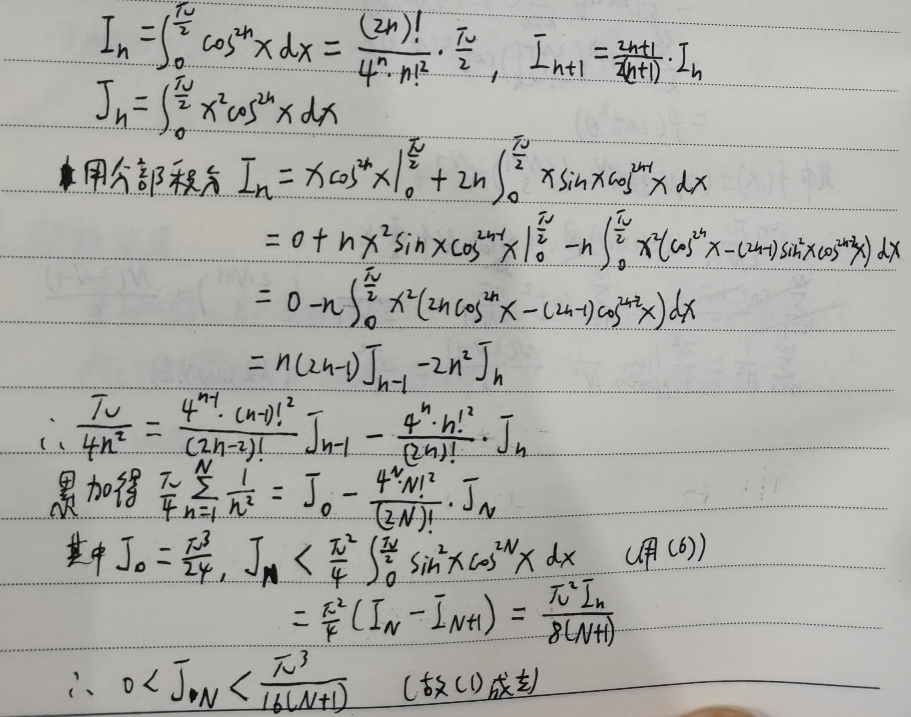 I_n = ∫_0^{π/2} cos^{2n}x dx = (2n)!/(4^n · n!^2) · π/2 , I_{n+1} = (2n+1)/(2(n+1)) · I_n
J_n = ∫_0^{π/2} x^2 cos^{2n}x dx
用分部积分 I_n = x cos^{2n}x |_0^{π/2} + 2n ∫_0^{π/2} x sinx cos^{2n-1}x dx
= 0 + n x^2 sinx cos^{2n-1}x |_0^{π/2} - n ∫_0^{π/2} x^2 (cos^{2n}x - (2n-1) sin^2x cos^{2n-2}x) dx
= 0 - n ∫_0^{π/2} x^2 (2n cos^{2n}x - (2n-1) cos^{2n-2}x) dx
= n(2n-1) J_{n-1} - 2n^2 J_n
∴ π/(4n^2) = (4^{n-1} · (n-1)!^2)/(2n-2)! J_{n-1} - (4^n · n!^2)/(2n)! · J_n
累加得 π/4 Σ_{n=1}^{N} 1/n^2 = J_0 - (4^N · N!^2)/(2N)! · J_N
其中 J_0 = π^3/24 , J_N < π^2/4 ∫_0^{π/2} sin^2x cos^{2N}x dx (用(6))
= π^2/4 (I_N - I_{N+1}) = π^2 I_n/(8(N+1))
∴ 0 < J_N < π^3/(16(N+1)) (故(1)成立)